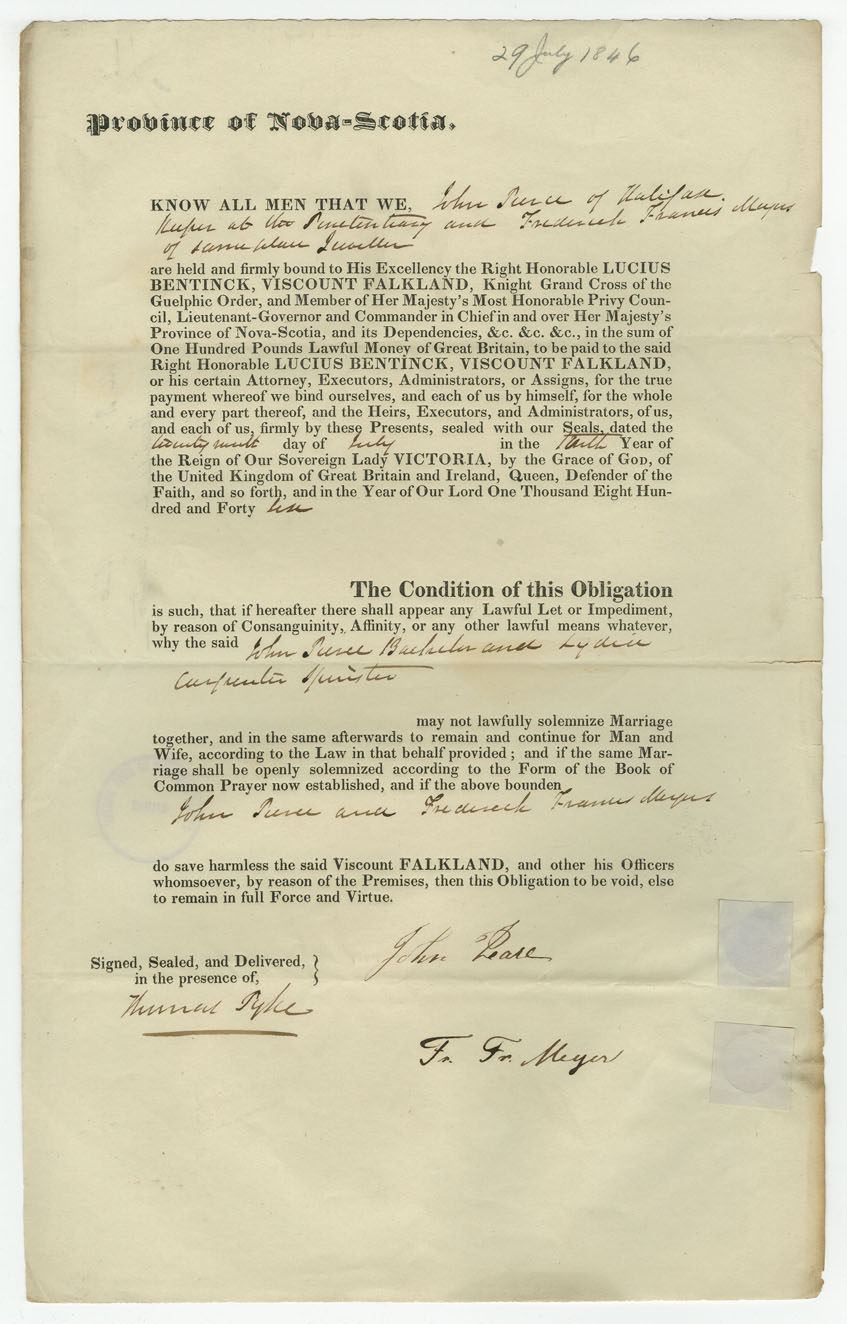 29 July 1846
Province of Nova-Scotia.
KNOW ALL MEN THAT WE, John Pierce of Halifax
Keeper at the Penetentiary and Frederick Francis Meyers
of same place Jeweller
are held and firmly bound to His Excellency the Right Honorable LUCIUS
BENTINCK, VISCOUNT FALKLAND, Knight Grand Cross of the
Guelphic Order, and Member of Her Majesty's Most Honorable Privy Coun-
cil, Lieutenant-Governor and Commander in Chief in and over Her Majesty's
Province of Nova-Scotia, and its Dependencies, &c. &c. &c., in the sum of
One Hundred Pounds Lawful Money of Great Britain, to be paid to the said
Right Honorable LUCIUS BENTINCK, VISCOUNT FALKLAND,
or his certain Attorney, Executors, Administrators, or Assigns, for the true
payment whereof we bind ourselves, and each of us by himself, for the whole
and every part thereof, and the Heirs, Executors, and Administrators, of us,
and each of us, firmly by these Presents, sealed with our Seals, dated the
twenty ninth day of July in the Tenth Year of
the Reign of Our Sovereign Lady VICTORIA, by the Grace of GOD, of
the United Kingdom of Great Britain and Ireland, Queen, Defender of the
Faith, and so forth, and in the Year of Our Lord One Thousand Eight Hun-
dred and Forty six
The Condition of this Obligation
is such, that if hereafter there shall appear any Lawful Let or Impediment,
by reason of Consanguinity, Affinity, or any other lawful means whatever,
why the said John Pierce Bachelor and Lydia
Carpenter Spinster
may not lawfully solemnize Marriage
together, and in the same afterwards to remain and continue for Man and
Wife, according to the Law in that behalf provided ; and if the same Mar-
riage shall be openly solemnized according to the Form of the Book of
Common Prayer now established, and if the above bounden
John Pierce and Frederick Francis Meyers
do save harmless the said Viscount FALKLAND, and other his Officers
whomsoever, by reason of the Premises, then this Obligation to be void, else
to remain in full Force and Virtue.
Signed, Sealed, and Delivered,
in the presence of,
John Pearce
Pyke
Fr. Fr. Meyer